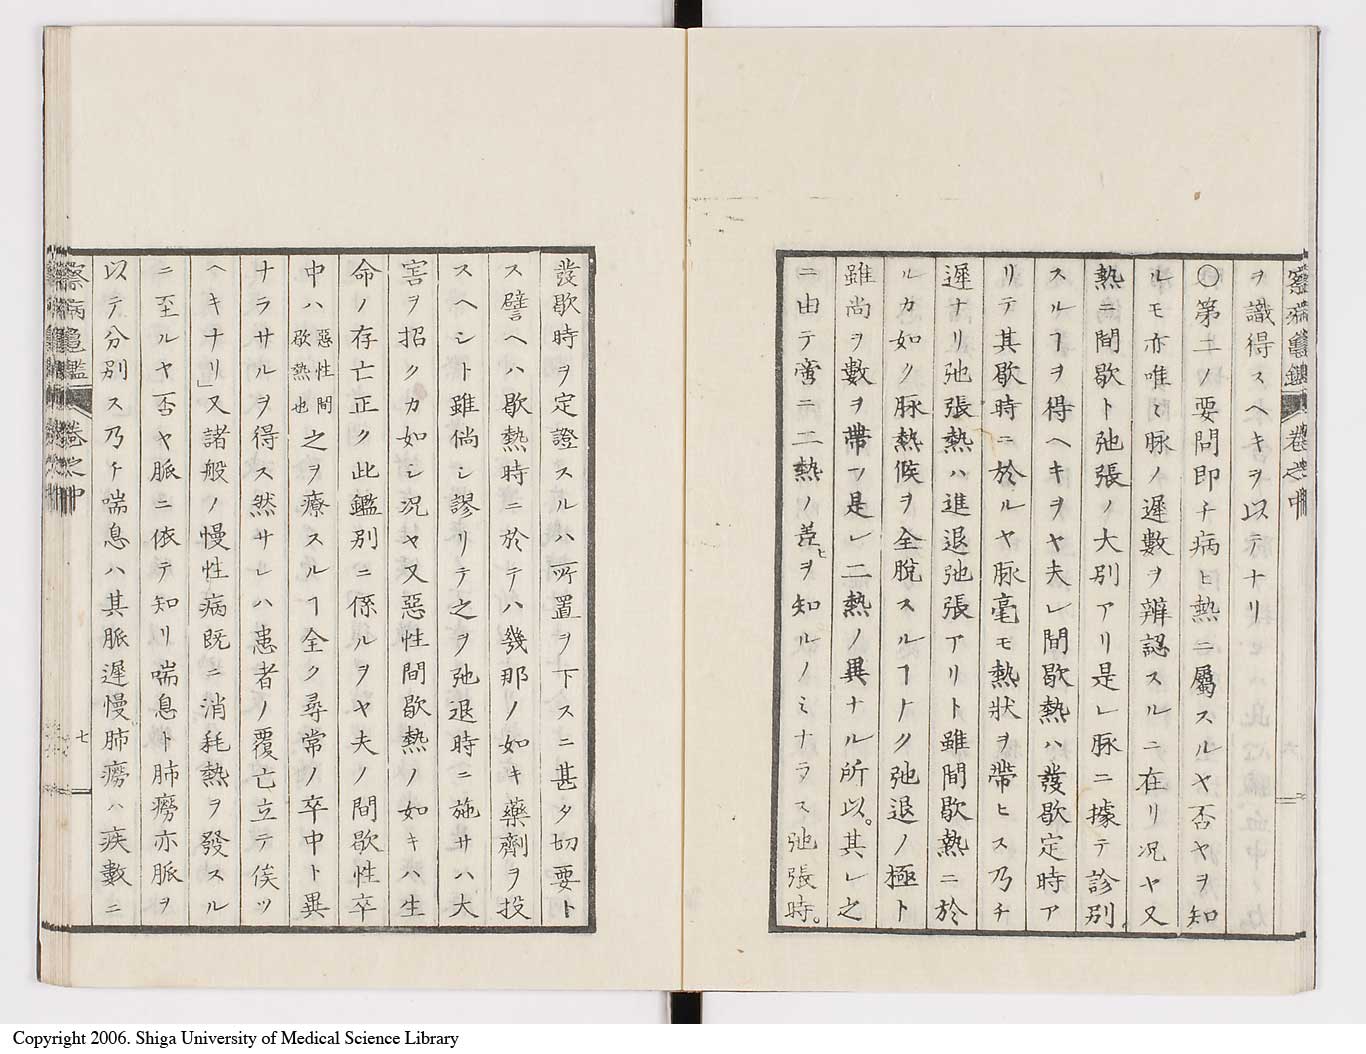 察病亀鑑 卷之中
ヲ識得スヘキヲ以テナリ
○第二ノ要問即チ病ヒ熱ニ屬スルヤ否ヤヲ知
ルモ亦唯ミ脉ノ遅數ヲ辨認スルニ在リ况ヤ又
熱ニ間歇ト弛張ノ大別アリ是レ脉ニ據テ診別
スルヿヲ得ヘキヲヤ夫レ間歇熱ハ發歇定時ア
リテ其歇時ニ於ルヤ脉毫モ熱狀ヲ帶ヒス乃チ
遲ナリ弛張熱ハ進退弛張アリト雖間歇熱ニ於
ルカ如ク脉熱候ヲ全脫スルヿナク弛退ノ極ト
雖尚ヲ數ヲ帶フ是レ二熱ノ異ナル所以。其レ之
ニ由テ啻ニ二熱ノ差ヒヲ知ルノミナラス弛張時。
發歇時ヲ定證スルハ所置ヲ下スニ甚タ切要ト
ス譬ヘハ歇熱時ニ於テハ幾那ノ如キ藥劑ヲ投
スヘシト雖倘シ謬リテ之ヲ弛退時ニ施サハ大
害ヲ招クカ如シ况ヤ又惡性間歇熱ノ如キハ生
命ノ存亡正ク此鑑別ニ係ルヲヤ夫ノ間歇性卒
中ハ惡性間歇熱也之ヲ療スルヿ全ク尋常ノ卒中ト異
ナラサルヲ得ス然サレハ患者ノ覆亡立テ俟ツ
ヘキナリ」又諸般ノ慢性病既ニ消耗熱ヲ發スル
ニ至ルヤ否ヤ脈ニ依テ知リ喘息ト肺癆亦脈ヲ
以テ分別ス乃チ喘息ハ其脈遲慢肺癆ハ疾數ニ
察病亀鑑 卷之中 七
Copyright 2006. Shiga University of Medical Science Library